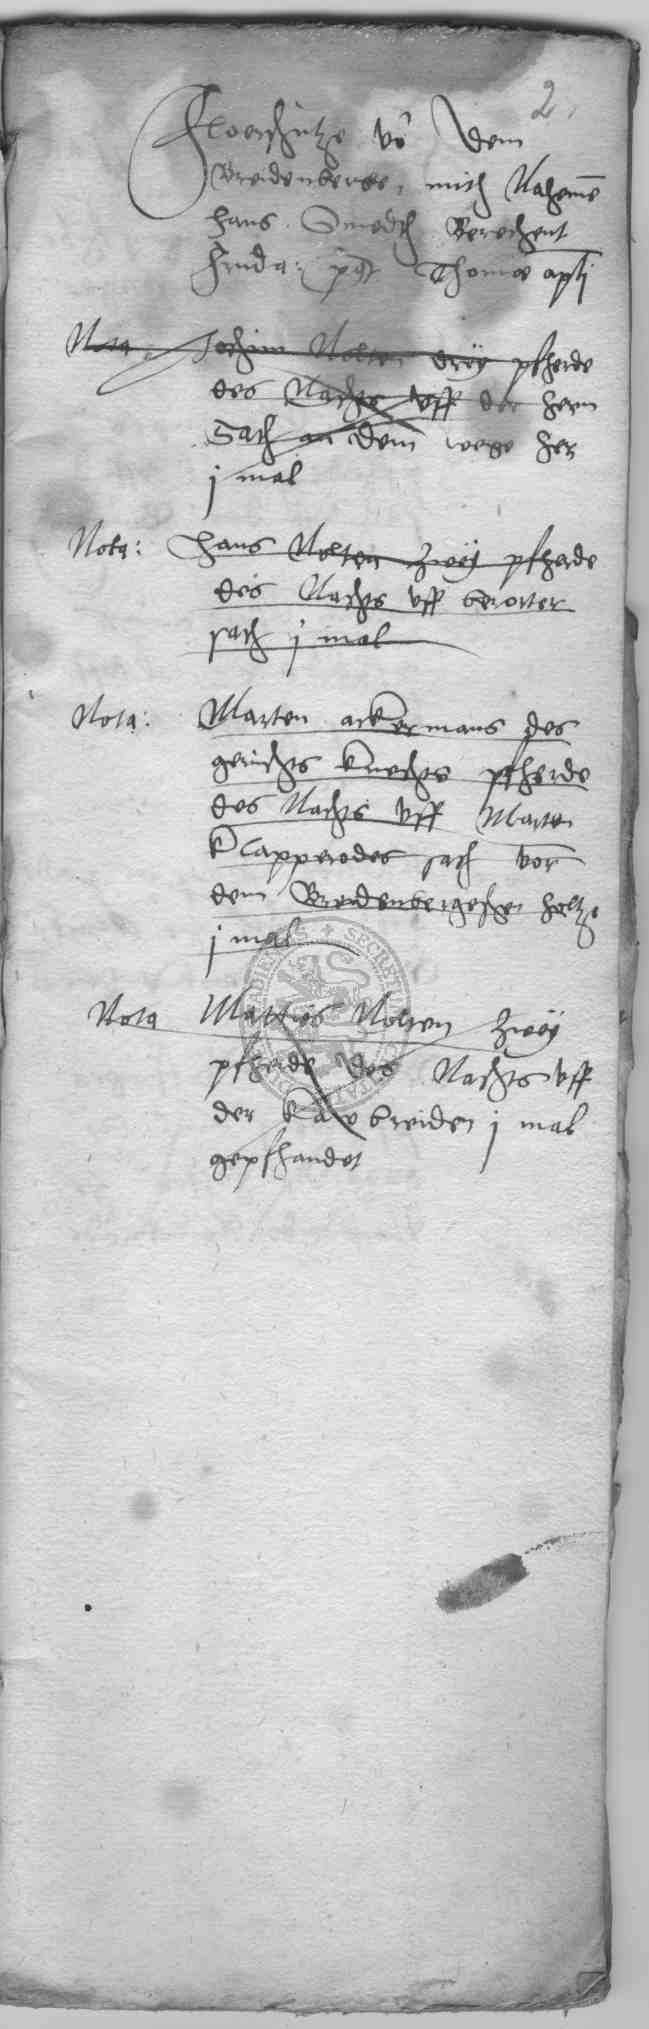 2
Floerschutze vō dem
Breidenberge, mith Nahemē
Hans Smedth Berechent
frida: post Thomæ apli
Nota Jochim Nolten dreÿ pfherde
des Nachts vff der hern
Sath an dem wege her
j mal
Nota: Hans Nolten zweÿ pfherde
des Nachts vff berorter
sath j mal
Nota: Marten ackermans des
gerichts knechts pfherde
des Nachts vff Marten
Klapperodes sath vor
dem Breidenbergeschen holtze
j mal
Nota Matties Nolten zweÿ
pfherde des Nachts vff
der breiden j mal
gepfhandet
SECRETUM